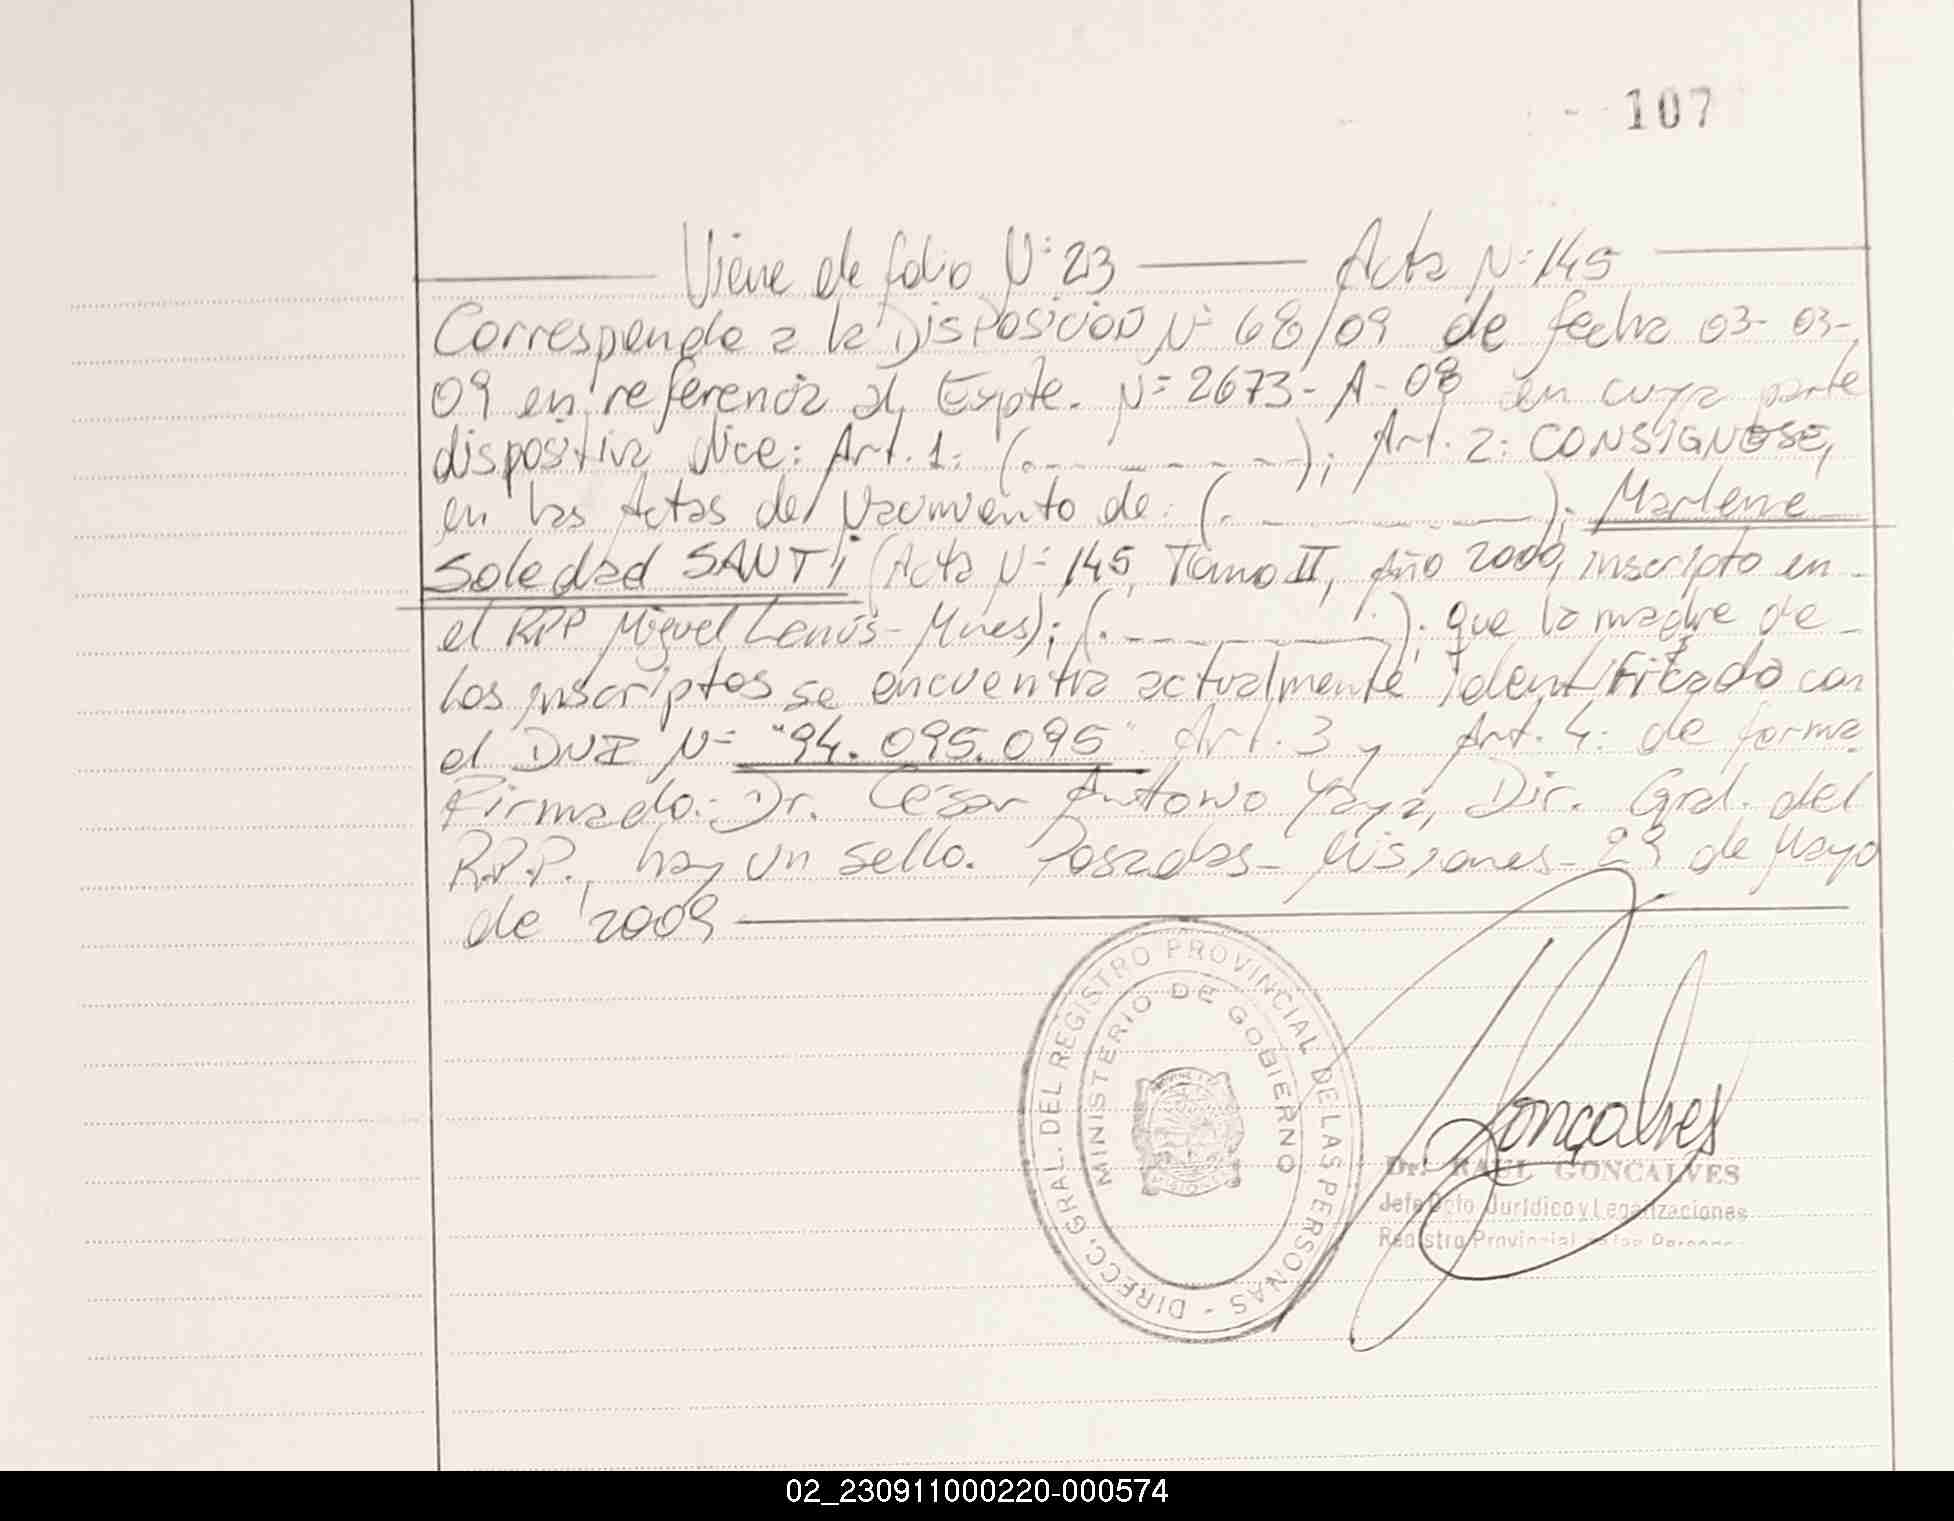 107
Viene de folio Nº 23 Acta Nº 145
Corresponde a la Disposición Nº 68/09 de fecha 03-03-
09 en referencia al Expte. Nº 2673-A-08 en cuya parte
dispositiva dice: Art. 1: (. - - - - - - -); Art. 2: CONSIGNESE,
en las Actas de Nacimiento de: (. - - - - - -); Marlene
Soledad SANTI (Acta Nº 145, Tomo II, Año 2000, inscripto en -
el RPP Miguel Lanús - Mnes); (. - - - - - -); que la madre de -
los inscriptos se encuentra actualmente identificado con
el DNI Nº "94.095.095" Art. 3 y Art. 4: de forma.
Firmado: Dr. César Antonio Yaya, Dir. Gral. del
R.P.P., hay un sello. Posadas - Misiones - 29 de Mayo
de 2009
DIRECC. GRAL. DEL REGISTRO PROVINCIAL DE LAS PERSONAS -
MINISTERIO DE GOBIERNO
MISIONES
Gonçalves
Dr. RAUL GONCALVES
Jefe Dpto Jurídico y Legalizaciones
Registro Provincial de las Personas
02_230911000220-000574